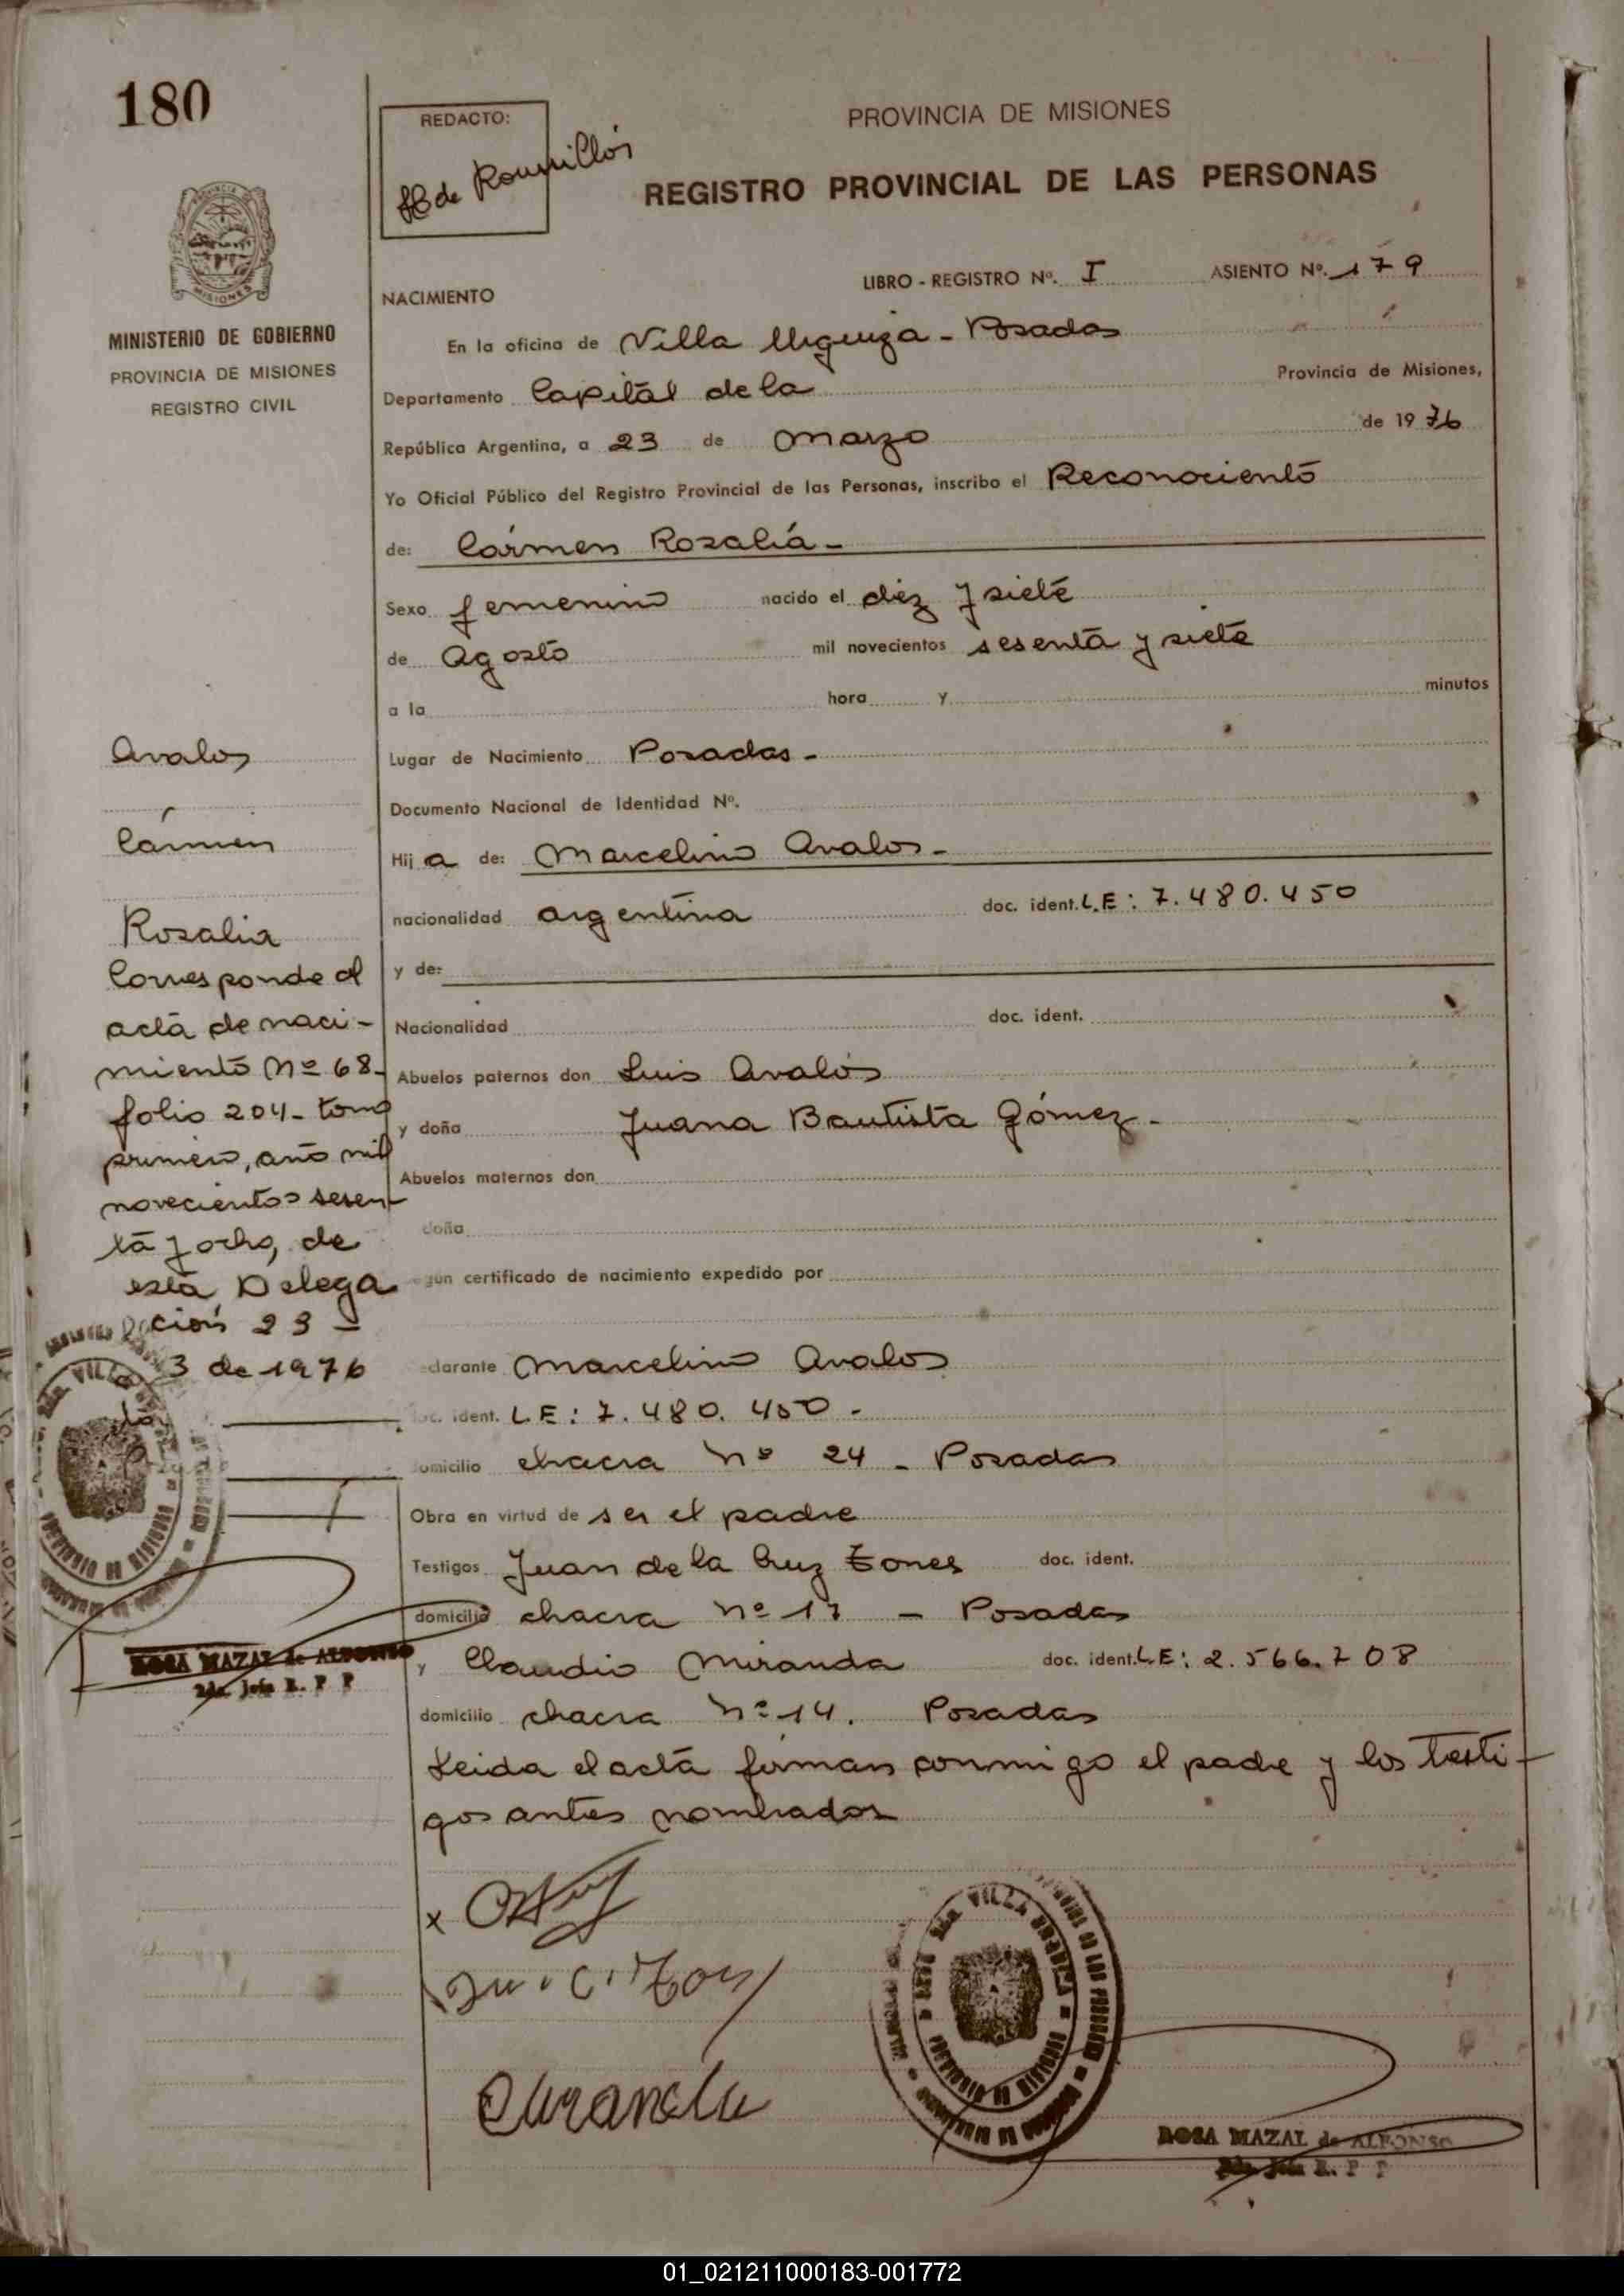 180
REDACTO:
PROVINCIA DE MISIONES
REGISTRO PROVINCIAL DE LAS PERSONAS
PROVINCIA
MISIONES
MINISTERIO DE GOBIERNO
PROVINCIA DE MISIONES
REGISTRO CIVIL
LIBRO - REGISTRO Nº. I ASIENTO Nº. 179
NACIMIENTO
En la oficina de Villa Urquiza - Posadas
Departamento Capital de la Provincia de Misiones,
República Argentina, a 23 de Marzo de 1976
Yo Oficial Público del Registro Provincial de las Personas, inscribo el Reconociento
de: Cármen Rosalía -
Sexo femenino nacido el diez y siete
de Agosto mil novecientos sesenta y siete
a la hora y minutos
Lugar de Nacimiento Posadas -
Documento Nacional de Identidad Nº.
Hija de: Marcelino Avalos -
nacionalidad argentina doc. ident. L.E: 7.480.450
y de:
Nacionalidad doc. ident.
Abuelos paternos don Luis Avalos
y doña Juana Bautista Gómez -
Abuelos maternos don
doña
egún certificado de nacimiento expedido por
clarante Marcelino Avalos
oc. ident. L.E: 7.480.450 -
omicilio chacra nº 24 - Posadas
Obra en virtud de ser el padre
Testigos Juan de la Cruz doc. ident.
domicilio chacra nº 17 - Posadas
y Claudio Miranda doc. ident. L.E: 2.566.708
domicilio chacra nº 14. Posadas
Leida el acta firman conmigo el padre y los testi-
gos antes nombrados
Avalos
Cármen
Rosalia
Corresponde al
acta de naci-
miento Nº 68-
folio 204- tomo
primero, año mil
novecientos sesen-
ta y ocho, de
esta Delega
ción 23 -
3 de 1976
ROSA MAZAL de ALFONSO
2da. Jefa R. P P
VILLA URQUIZA
ROSA MAZAL de ALFONSO
2da. Jefa R. P P
01_021211000183-001772